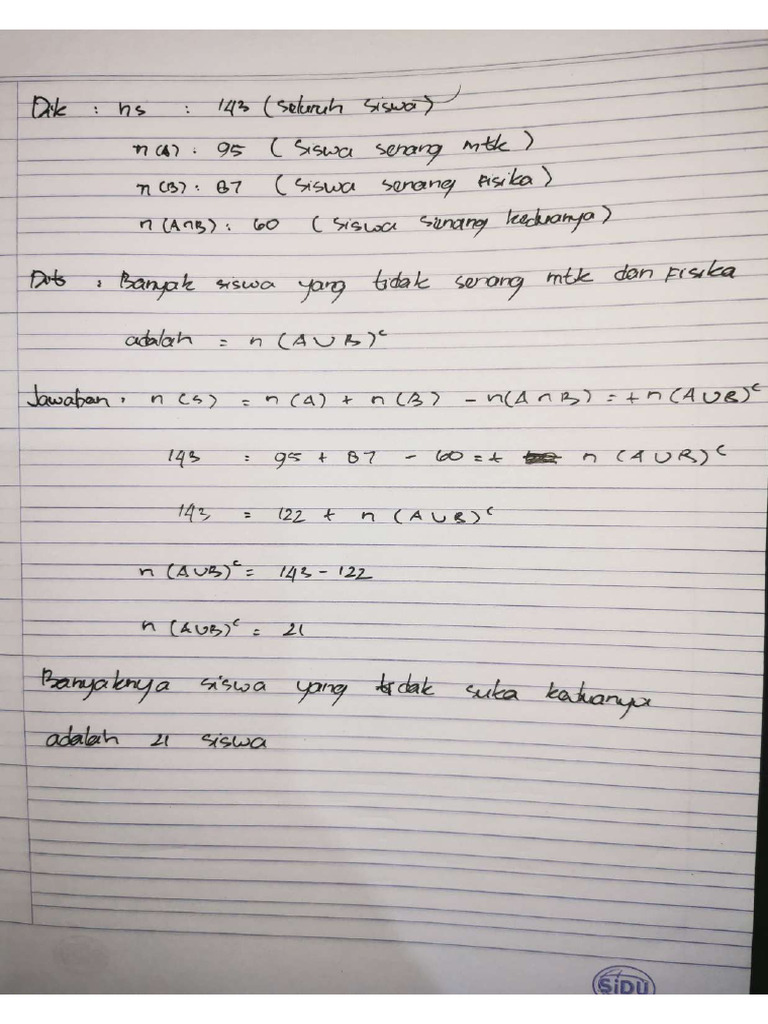 Dik : ns : 143 (seluruh siswa)
n(A) : 95 (siswa senang mtk)
n(B) : 87 (siswa senang Fisika)
n(A∩B) : 60 (siswa senang keduanya)
Dit : Banyak siswa yang tidak senang mtk dan Fisika
adalah = n (A∪B)ᶜ
Jawaban : n (s) = n(A) + n(B) - n(A∩B) = + n(A∪B)ᶜ
143 = 95 + 87 - 60 = + n (A∪B)ᶜ
143 = 122 + n (A∪B)ᶜ
n (A∪B)ᶜ = 143 - 122
n (A∪B)ᶜ = 21
Banyaknya siswa yang tidak suka keduanya
adalah 21 siswa
SiDU